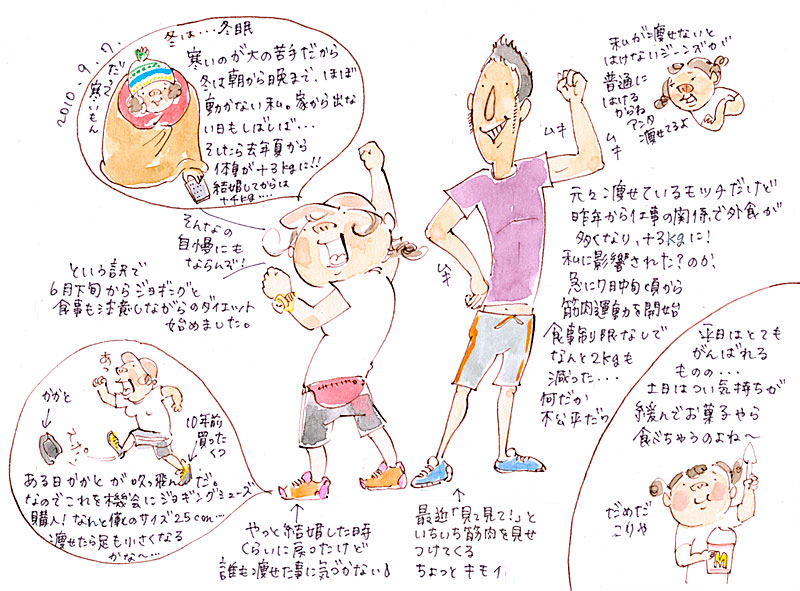 2010.9.7.
冬は…冬眠
寒いのが大の苦手だから
冬は朝から晩まで、ほぼ
動かない私。家から出な
い日もしばしば…
そしたら去年夏から
体重が+3kgに!!
結婚してからは
+4kg…
だって
寒いもん
そんなの
自慢にも
ならんぞ!
という訳で
6月下旬からジョギングと
食事も注意しながらのダイエット
始めました。
あっ
かかと
スポーン
10年前
買った
くつ
ある日かかとが吹っ飛んだ。
なのでこれを機会にジョギングシューズ
購入!なんと僕とのサイズ25cm…
痩せたら足も小さくなる
かな〜…
やっと結婚した時
くらいに戻ったけど
誰も痩せた事に気づかない
ムキ
ムキ
ムキ
私が痩せないと
はけないジーンズが
普通に
はける
からね
アンタ
痩せてるよ
元々痩せているモッチだけど
昨年から仕事の関係で外食が
多くなり、+3kgに!
私に影響された?のか、
急に7月中旬頃から
筋肉運動を開始
食事制限なしで
なんと2kgも
減った…
何だか
不公平だわ
最近「見て見て!」と
いちいち筋肉を見せ
つけてくる
ちょっとキモイ
平日はとても
がんばれる
ものの…
土日はつい気持ちが
緩んでお菓子やら
食べちゃうのよね〜
だめだ
こりゃ
M